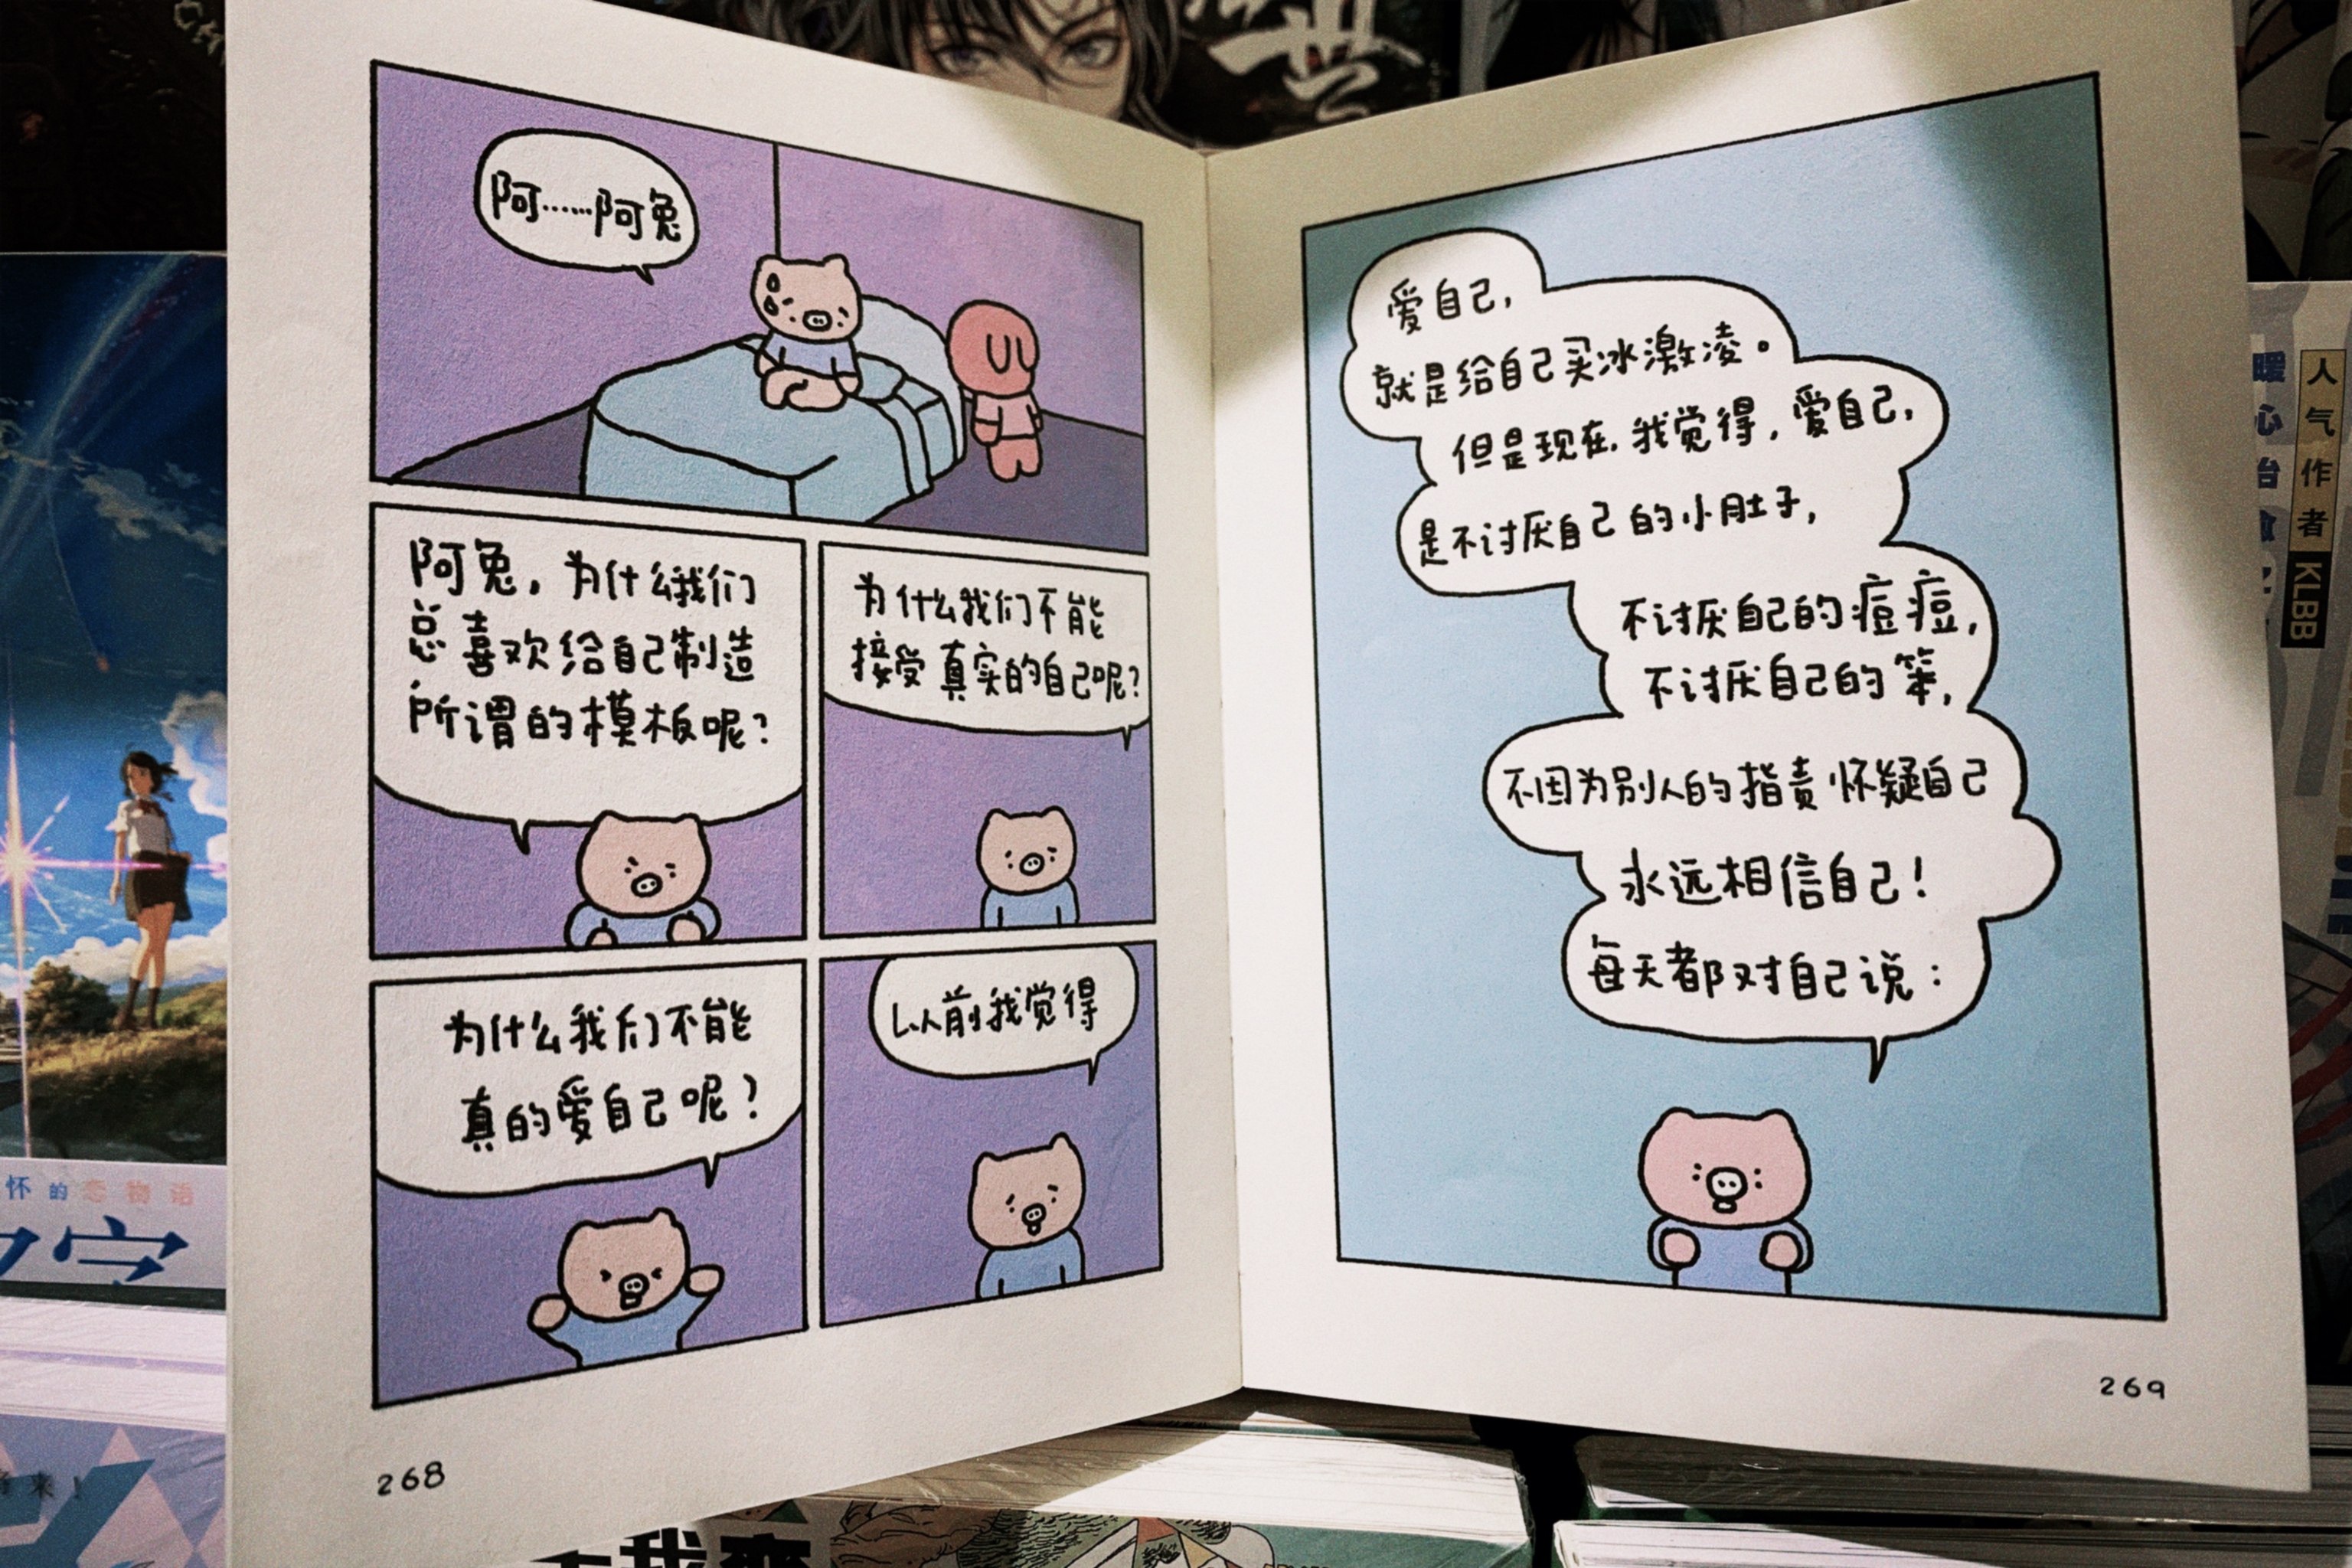 阿……阿兔
阿兔，为什么我们
总喜欢给自己制造
所谓的模板呢？
为什么我们不能
接受真实的自己呢？
为什么我们不能
真的爱自己呢？
以前我觉得
268
爱自己，
就是给自己买冰激凌。
但是现在，我觉得，爱自己，
是不讨厌自己的小肚子，
不讨厌自己的痘痘，
不讨厌自己的笨，
不因为别人的指责怀疑自己
永远相信自己！
每天都对自己说：
269
怀的恋物语
人气作者
KLBB
暖心治
来！
我恋